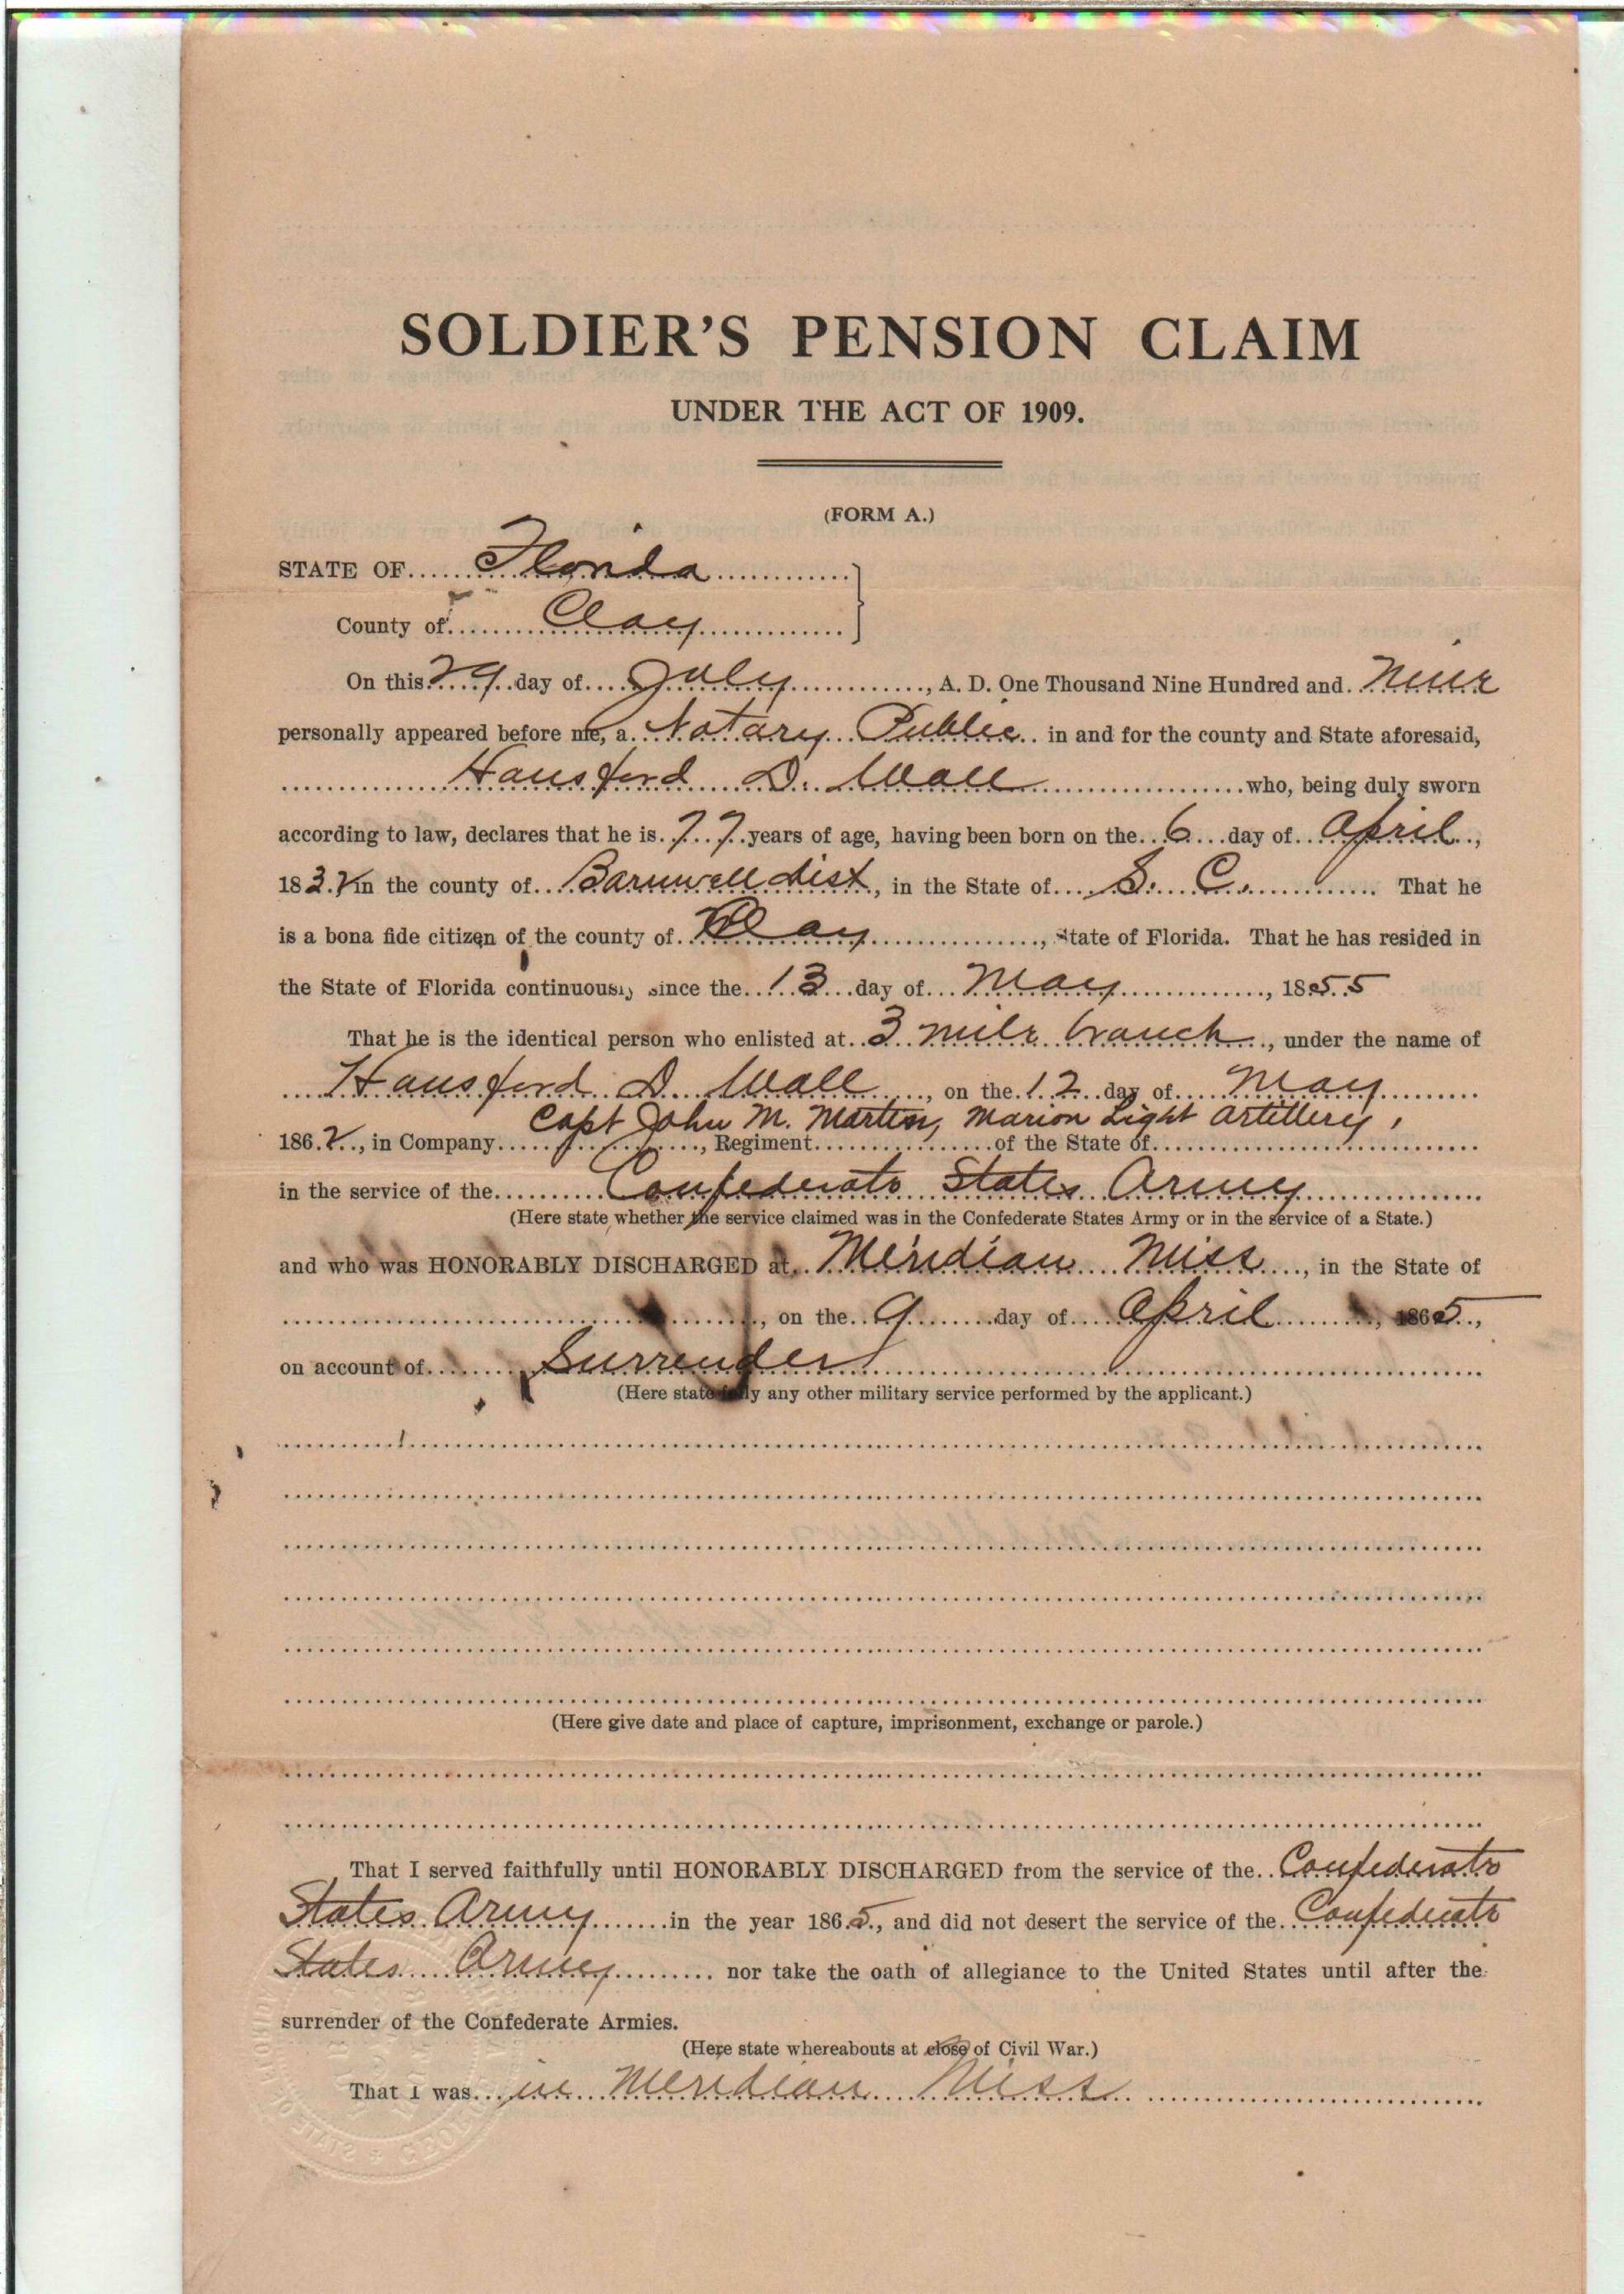 SOLDIER'S PENSION CLAIM
UNDER THE ACT OF 1909.
(FORM A.)
STATE OF Florida
County of Clay
On this 29 day of July, A. D. One Thousand Nine Hundred and Nine
personally appeared before me, a Notary Public in and for the county and State aforesaid,
Hansford D. Wall who, being duly sworn
according to law, declares that he is 77 years of age, having been born on the 6 day of April,
1832 in the county of Barnwell dist, in the State of S. C. That he
is a bona fide citizen of the county of Clay, State of Florida. That he has resided in
the State of Florida continuously since the 13 day of May, 1855
That he is the identical person who enlisted at 3 mile branch, under the name of
Hansford D. Wall, on the 12 day of May
Capt John M. Martin, Marion Light Artillery,
1862, in Company, Regiment of the State of
in the service of the Confederate States Army
(Here state whether the service claimed was in the Confederate States Army or in the service of a State.)
and who was HONORABLY DISCHARGED at Meridian Miss, in the State of
, on the 9 day of April, 1865,
on account of Surrender
(Here state fully any other military service performed by the applicant.)
(Here give date and place of capture, imprisonment, exchange or parole.)
That I served faithfully until HONORABLY DISCHARGED from the service of the Confederate
States Army in the year 1865, and did not desert the service of the Confederate
States Army nor take the oath of allegiance to the United States until after the
surrender of the Confederate Armies.
(Here state whereabouts at close of Civil War.)
That I was in Meridian Miss